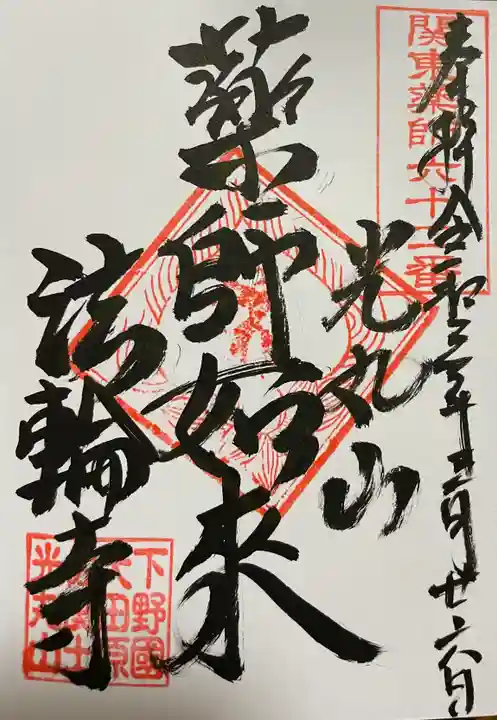 奉拝 令和三年十一月廿六日
関東薬師六十二番
光丸山
薬師如来
法輪寺
下野國
大田原
光丸山